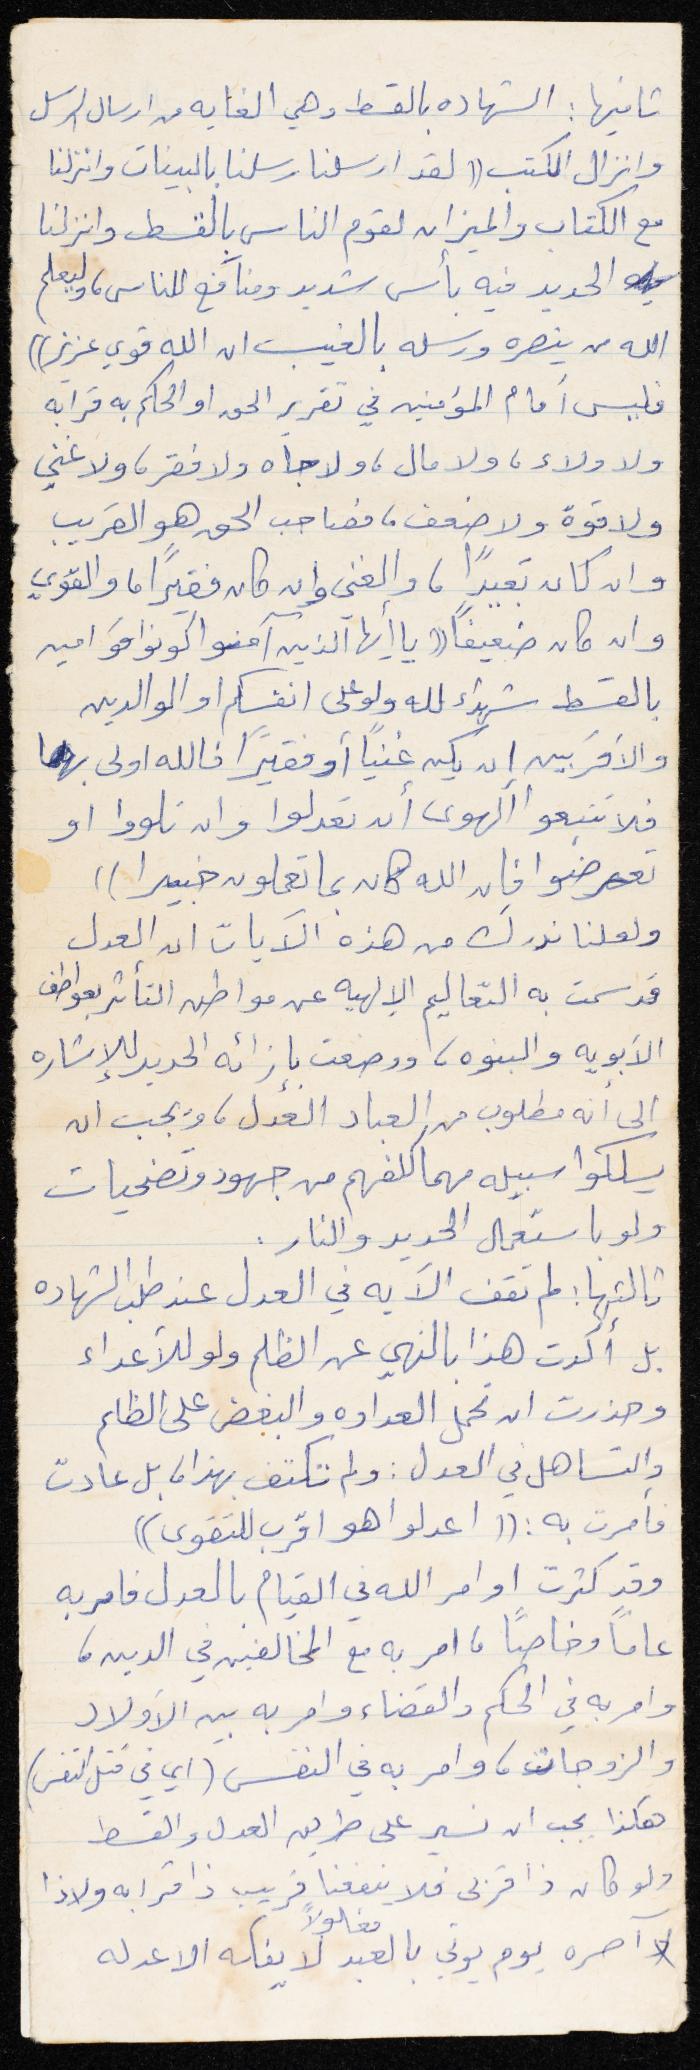 ثانيها: الشهاده بالقسط وهي الغايه من ارسال الرسل
وانزال الكتب (( لقد ارسلنا رسلنا بالبينات وانزلنا
مع الكتاب والميزان لقوم الناس بالقسط وانزلنا
الحديد فيه بأس شديد ومنافع للناس، وليعلم
الله من ينصره ورسله بالغيب ان الله قوي عزيز))
فليس أمام المؤمنين في تقرير الحق او الحكم به قرابه
ولا ولاء، ولا مال، ولا جاه ولا فقر، ولا غنى
ولا قوة ولا ضعف، فصاحب الحق هو القريب
وان كان بعيدًا، والغني وإن كان فقيرًا، والقوي
وان كان ضعيفًا (( يا أيها الذين آمنوا كونوا قوامين
بالقسط شهداء لله ولو على انفسكم او الوالدين
والأقربين إن يكن غنيًا أو فقيرًا فالله اولى بهما
فلا تتبعوا الهوى أن تعدلوا وان تلووا او
تعرضوا فإن الله كان بما تعملون خبيرا))
ولعلنا ندرك من هذه الآيات ان العدل
قد سمت به التعاليم الإلهيه عن مواطن التأثر بعواطف
الأبويه والبنوه، ووضعت بإزائه الحديد للإشاره
الى أنه مطلوب من العباد العدل، ويجب ان
يسلكوا سبيله مهما كلفهم من جهود وتضحيات
ولو باستعمال الحديد والنار.
ثالثها: لم تقف الآيه في العدل عند طلب الشهاده
بل أكدت هذا بالنهي عن الظلم ولو للأعداء
وحذرت ان تحمل العداوه والبغض على الظلم
والتساهل في العدل: ولم تكتف بهذا، بل عادت
فأمرت به: (( اعدلوا هو اقرب للتقوى))
وقد كثرت اوامر الله في القيام بالعدل فامر به
عامًا وخاصًا، امر به مع المخالفين في الدين،
وامر به في الحكم والقضاء وامر به بين الأولاد
والزوجات، وامر به في النفس (اي في قتل النفس)
هكذا يجب ان نسير على طريق العدل والقسط
ولو كان ذا قربى فلا ينفعنا قريب ذا قرابه ولاذا
آصره يوم يؤتى بالعبد مغلولاً لا يفكه الا عدله